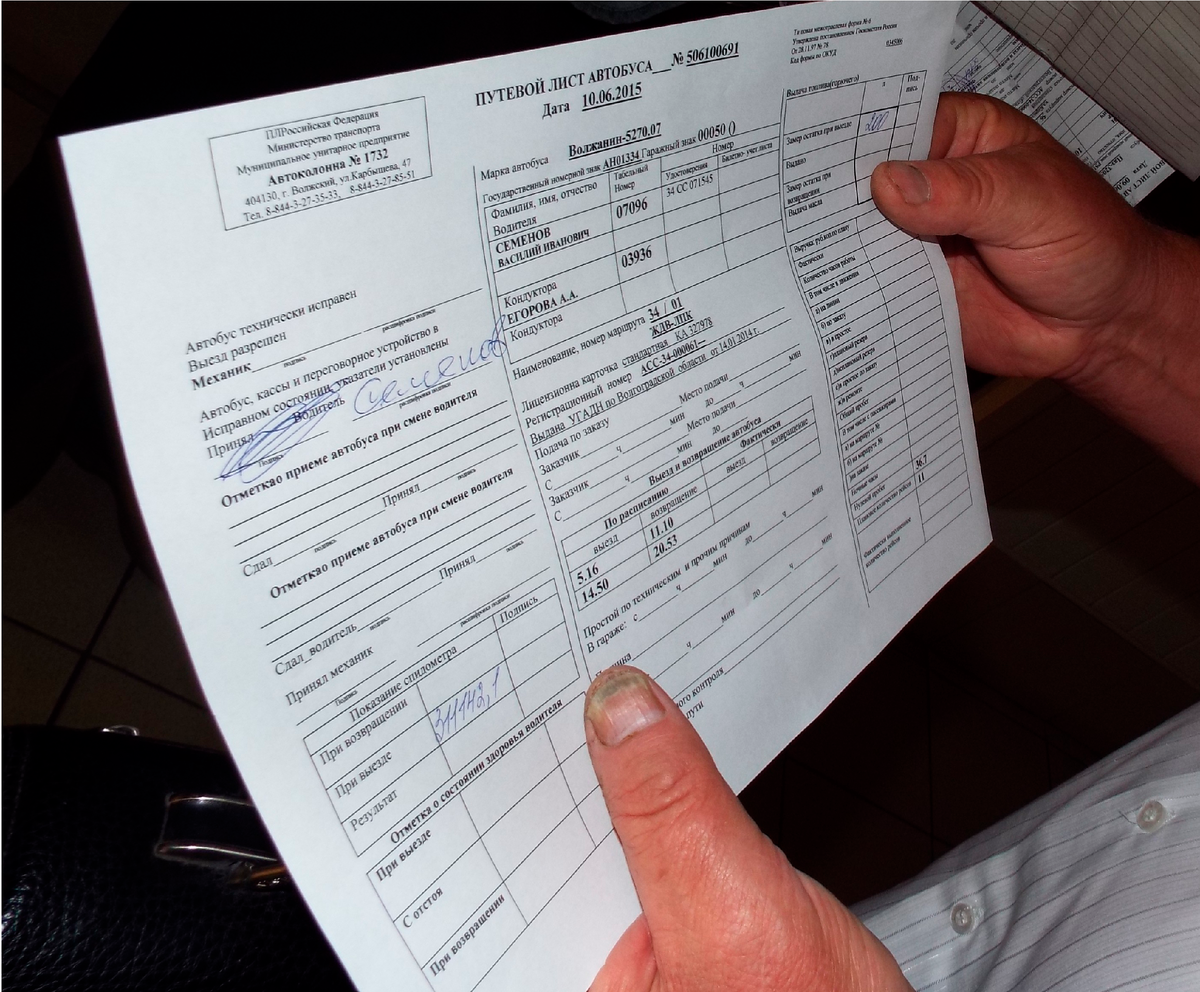 ПУТЕВОЙ ЛИСТ АВТОБУСА___№ 506100691
Дата 10.06.2015
Типовая межотраслевая форма № 6
Утверждена постановлением Госкомстата России
От 28.11.97 № 78
Код формы по ОКУД 0345006
ПЛРоссийская Федерация
Министерство транспорта
Муниципальное унитарное предприятие
Автоколонна № 1732
404130, г. Волжский, ул.Карбышева, 47
Тел. 8-844-3-27-35-33, 8-844-3-27-85-51
Автобус технически исправен
Выезд разрешен
Механик
подпись расшифровка подписи
Автобус, кассы и переговорное устройство в
Исправном состоянии, указатели установлены
Принял Водитель Семенов
Подпись расшифровка подписи
Отметкао приеме автобуса при смене водителя
Принял
подпись
Сдал
подпись
Отметкао приеме автобуса при смене водителя
Принял
подпись
Сдал_водитель
подпись расшифровка подписи
Принял механик
Подпись
Показание спидометра Подпись
При возвращении
При выезде
Результат
Отметка о состоянии здоровья водителя
При выезде
С отстоя
При возвращении
Марка автобуса Волжанин-5270.07
Государственный номерной знак АН01334 Гаражный знак 00050 ()
Фамилия, имя, отчество Табельный Номер Номер
Удостоверения Билетно- учет листа
Водителя
СЕМЕНОВ 07096 34 СС 071545
ВАСИЛИЙ ИВАНОВИЧ
Кондуктора 03936
ЕГОРОВА А.А.
Кондуктора
Наименование, номер маршрута 34 / 01
ЖДВ-ЛПК
Лицензионна карточка стандартная КА 327978
Регистрационный номер АСС-34-000061—
Выдана УГАДН по Волгоградской области от 14.01.2014 г.
Подача по заказу
Заказчик ч мин Место подачи
С ч мин до ч мин
Заказчик ч мин Место подачи
С ч мин до
Выезд и возвращение автобуса
По расписанию Фактически
выезд возвращение выезд возвращение
5.16 11.10
14.50 20.53
Простой по техническим и прочим причинам
В гараже: с ч мин до ч мин
ч мин до ч мин
контроля
пути
Выдача топлива(горючего) л Под-
пись
Замер остатка при выезде 200
Выдано
Замер остатка при
возвращении
Выдача масла
Выручка руб.коп
Фактически
Количество часов работы
В том числе в движении
а) на линии
б) по заказу
в) в простое
Общий пробег
Ночные часы
Нулевой пробег 36.7
Плановое количество рейсов 11
Фактически выполненное
количество рейсов